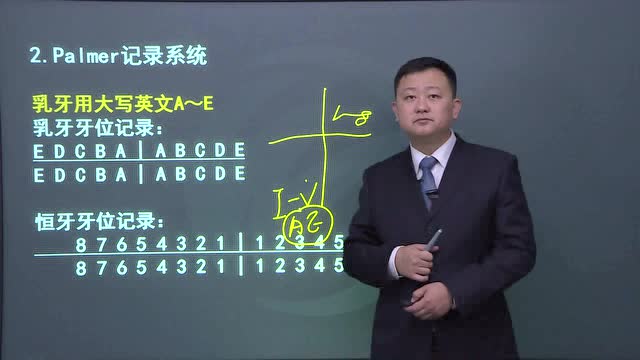 2.Palmer记录系统
乳牙用大写英文A～E
乳牙牙位记录：
E D C B A | A B C D E
E D C B A | A B C D E
恒牙牙位记录：
8 7 6 5 4 3 2 1 | 1 2 3 4 5
8 7 6 5 4 3 2 1 | 1 2 3 4 5
1~8
I-V